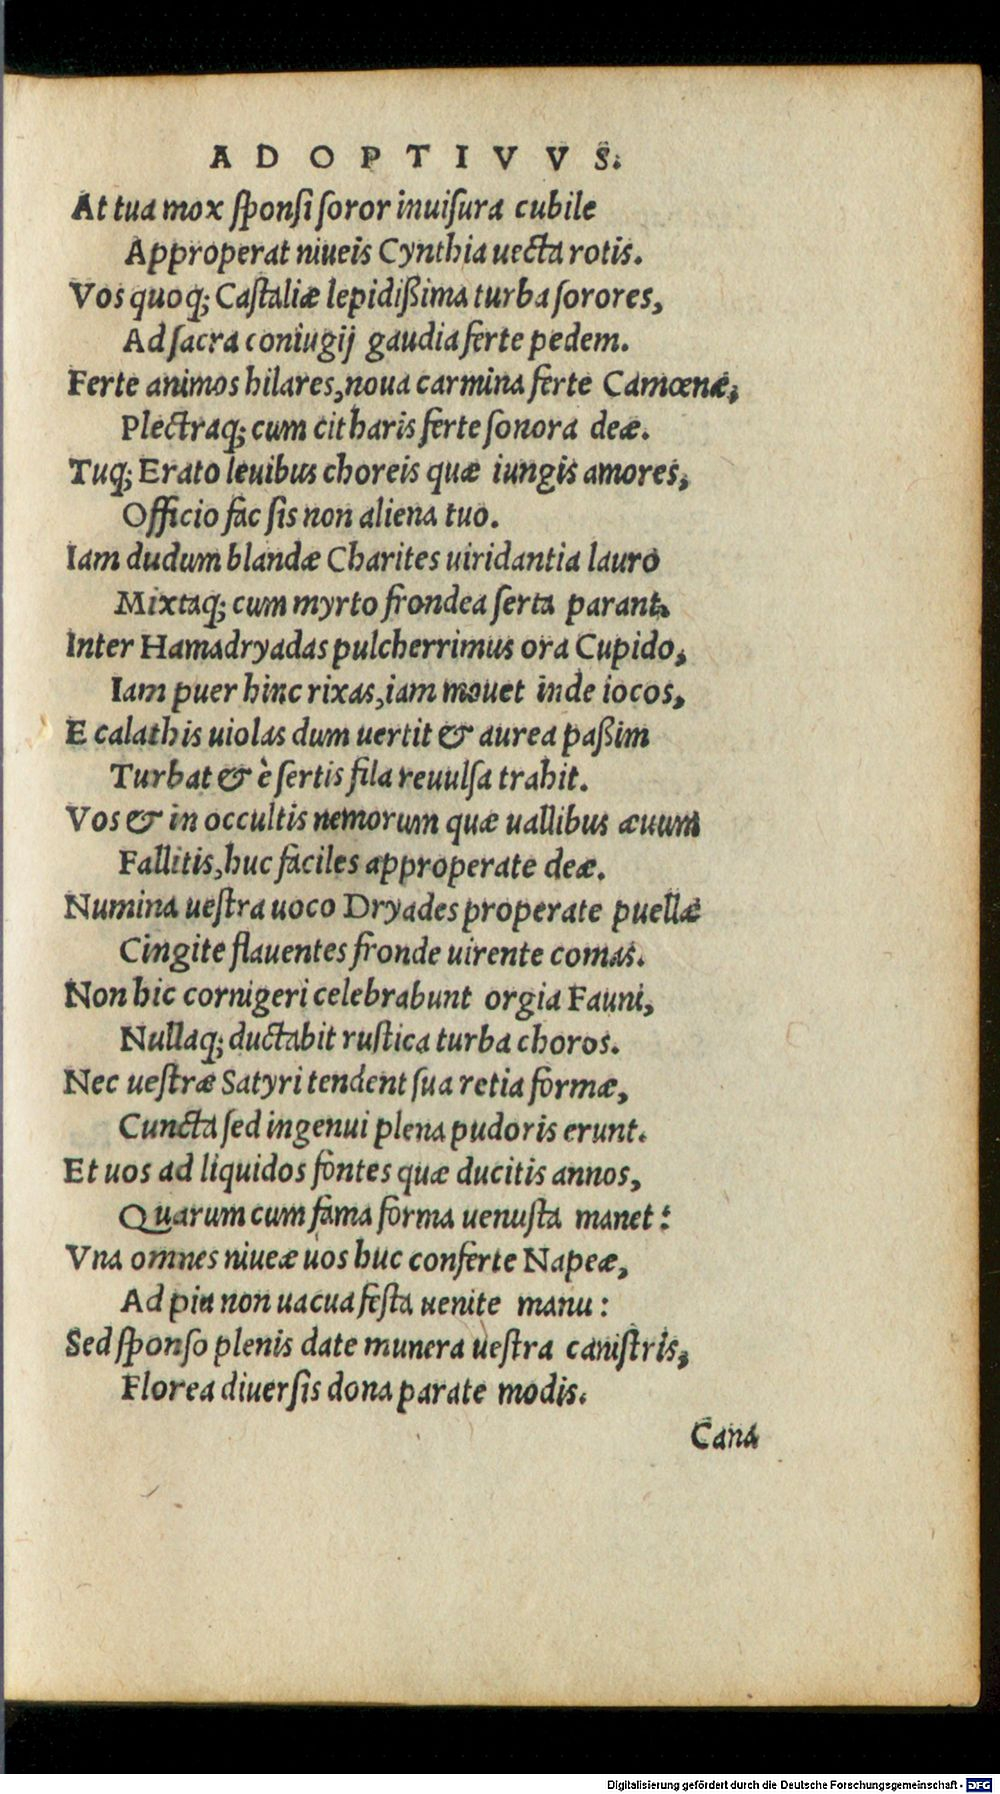 ADOPTIVVS.
At tua mox ſponſi ſoror inuiſura cubile
Approperat niueis Cynthia uecta rotis.
Vos quoq; Caſtaliæ lepidißima turba ſorores,
Ad ſacra coniugij gaudia ferte pedem.
Ferte animos hilares, noua carmina ferte Camœnæ,
Plectraq; cum citharis ferte ſonora deæ.
Tuq; Erato leuibus choreis quæ iungis amores,
Officio fac ſis non aliena tuo.
Iam dudum blandæ Charites uiridantia lauro
Mixtaq; cum myrto frondea ſerta parant.
Inter Hamadryadas pulcherrimus ora Cupido,
Iam puer hinc rixas, iam mouet inde iocos,
E calathis uiolas dum uertit & aurea paßim
Turbat & è ſertis fila reuulſa trahit.
Vos & in occultis nemorum quæ uallibus æuum
Fallitis, huc faciles approperate deæ.
Numina ueſtra uoco Dryades properate puellæ
Cingite flauentes fronde uirente comas.
Non hic cornigeri celebrabunt orgia Fauni,
Nullaq; ductabit ruſtica turba choros.
Nec ueſtræ Satyri tendent ſua retia formæ,
Cuncta ſed ingenui plena pudoris erunt.
Et uos ad liquidos fontes quæ ducitis annos,
Quarum cum fama forma uenuſta manet:
Vna omnes niueæ uos huc conferte Napeæ,
Ad pia non uacua feſta uenite manu:
Sed ſponſo plenis date munera ueſtra caniſtris,
Florea diuerſis dona parate modis.
Cana
Digitalisierung gefördert durch die Deutsche Forschungsgemeinschaft - DFG